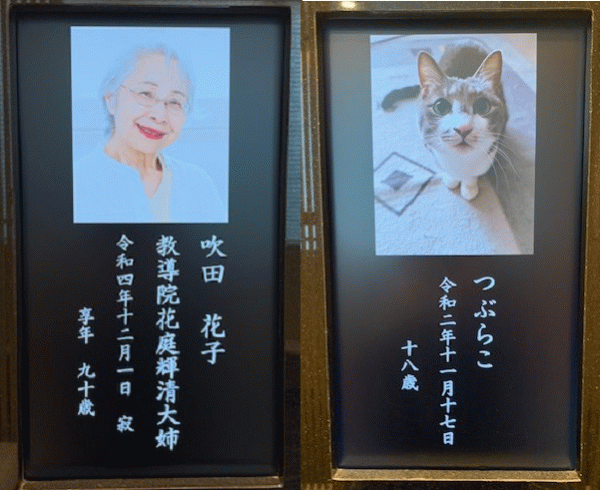 吹田 花子
教導院花庭輝清大姉
令和四年十二月一日 寂
享年 九十歳
つぶらこ
令和二年十一月十七日
十八歳